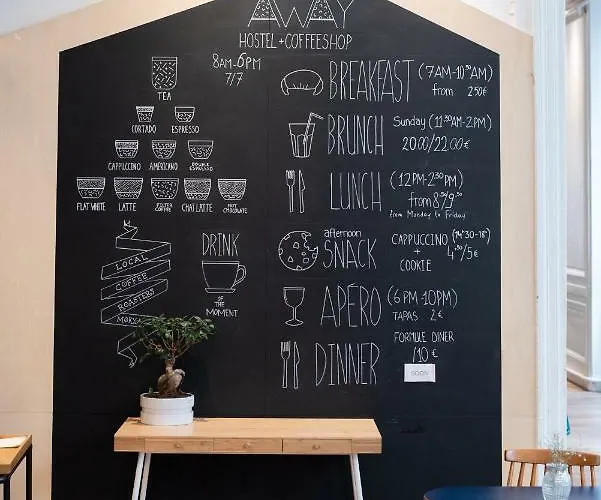 AWAY
HOSTEL + COFFEESHOP
8AM-6PM
7/7
TEA
CORTADO ESPRESSO
CAPPUCCINO AMERICANO DOUBLE ESPRESSO
FLAT WHITE LATTE FILTER COFFEE CHAI LATTE HOT CHOCOLATE
LOCAL
COFFEE
ROASTERS
DRINK
OF THE
MOMENT
BREAKFAST (7AM-10:30AM)
from 2.50€
BRUNCH Sunday (11:30AM-2PM)
20.00/22.00€
LUNCH (12PM-2:30PM)
from
from Monday to Friday
afternoon
SNACK CAPPUCCINO (14:30-18h)
+ 4,50/5€
COOKIE
APÉRO (6PM-10PM)
TAPAS 2€
DINNER FORMULE DINER
10€
SOON